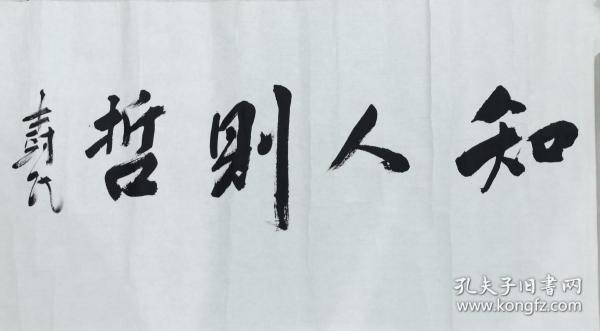 知人则哲
孔夫子旧书网
www.kongfz.com